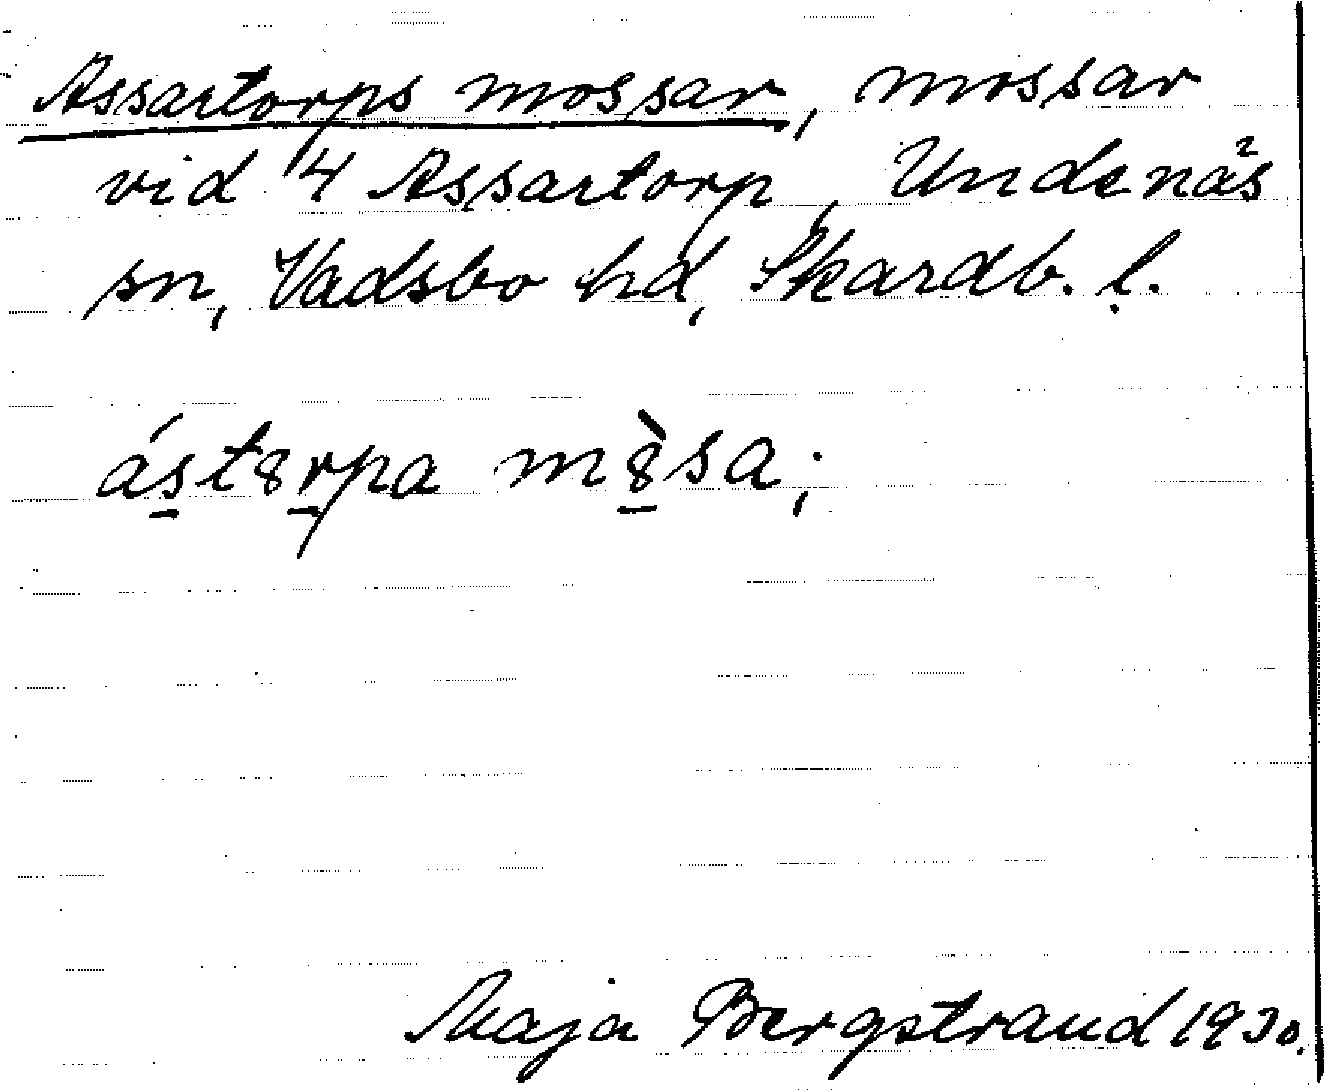 Assartorps mossar, mossar
vid 4 Assartorp, Undenäs
sn, Vadsbo hd, Skarab. l.
ást8rpa m8̀sa;
Maja Bergstrand 1930.